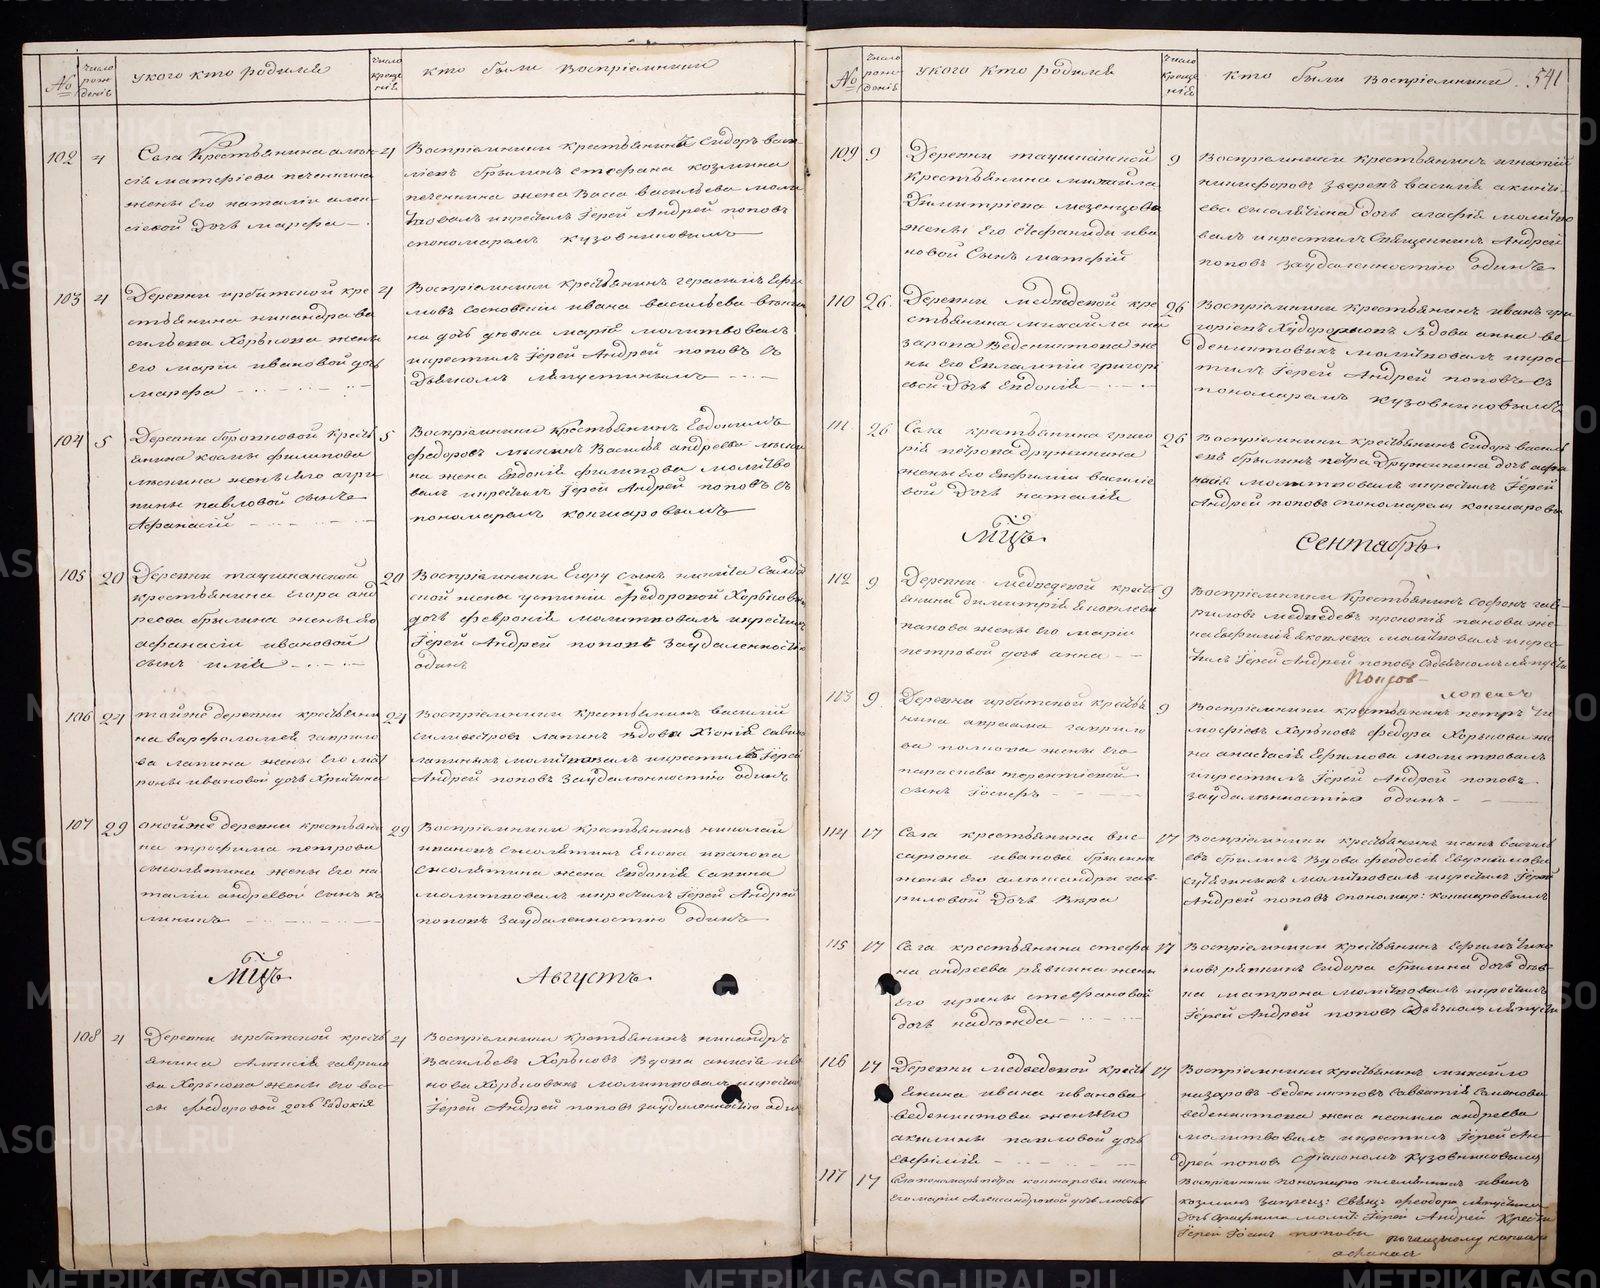 №
число рож деніѣ
у кого кто родился
число креще ніѣ
кто были воспріемники
102 4
Села Крестьянина алек
сіѧ матѳіева печенкина
жены его наталіи алек
сіевой дочь марѳа
4
Воспріемники крестьянинъ Сидоръ васи
ліевъ брылинъ стефана козмина
печенкина жена Васса васильева моли
твовалъ и крестилъ Іерей Андрей поповъ
спономаремъ кузовниковымъ
103 4
Деревни ирбитской кре
стьянина никандра ва
сильева Хорькова жены
его маріи ивановой дочь
марѳа
4
Воспріемники Крестьянинъ герасимъ Ефи
мовъ Сосновскіи ивана васильева
на дочь дѣвка маріѧ молитвовалъ
и крестилъ Іерей Андрей поповъ съ
Дьячкомъ лѣпустинымъ
104 5
Деревни Крестъ
янина козмы филипова
мынина жены его агри
пины павловой сынъ
Аѳанасій
5
Воспріемники Крестьянинъ Евдокимъ
ѳедоровъ мынинъ Василья андреева мыни
на жена Евдокія филипова молитво
валъ и крестилъ Іерей Андрей поповъ съ
пономаремъ кокшаровымъ
105 20
Деревни таушканской
крестьянина Егора анд
реева брылина жены его
аѳанасіи ивановой
сынъ иліѧ
20
Воспріемники Егору сынъ никита
ской жены устиніи ѳедоровой Хорькова
дочь ѳевроніѧ молитвовалъ и крестилъ
Іерей Андрей поповъ Заудаленностію
одинъ
106 24
тойже деревни крестьяни
на варѳоломея гаврило
ва лапина жены его мат
роны ивановой дочь Христина
24
Воспріемники крестьянинъ василій
силивестровъ лапинъ вдова Хіонія Савина
лапиныхъ молитвовалъ и крестилъ Іерей
Андрей поповъ Заудаленностію одинъ
107 29
онойже деревни крестьяни
на троѳима петрова
сысолятина жены его на
таліи андреевой сынъ ка
линикъ
29
Воспріемники крестьянинъ николай
ивановъ сысолятинъ Евдокія Савина
молитвовалъ и крестилъ Іерей Андрей
поповъ Заудаленностію одинъ
Мцъ
Августъ
108 4
Деревни ирбитской кресть
янина Алексія гаврило
ва Хорькова жены его вас
сы ѳедоровой дочь Евдокія
4
Воспріемники крестьянинъ никандръ
Васильевъ Хорьковъ Вдова анисія ива
нова Хорьковыхъ молитвовалъ и крестилъ
Іерей Андрей поповъ заудаленностію одинъ
№
число рож деніѣ
у кого кто родился
число креще ніѣ
кто были воспріемники
541
109 9
Деревни таушканской
Крестьянина михаила
Димитріева мезенцова
жены его стефаниды ива
новой Сынъ матѳій
9
Воспріемники крестьянинъ игнатій
никифоровъ Зверевъ василія акинѳи
ева сысолятина дочь агаѳія молитво
валъ и крестилъ Священникъ Андрей
поповъ заудаленностію одинъ
110 26
Деревни медведевой кре
стьянина михаила на
зарова Веденихтова же
ны его Евлампіи григорі
евой Дочь Евдокія
26
Воспріемники Крестьянинъ иванъ гри
горіевъ Вдова анна ве
молитвовалъ и крес
тилъ Іерей Андрей поповъ съ
пономаремъ кузовниковымъ
111 26
Села крестьянина григо
рія петрова дружинина
жены его Евфиміи василіе
вой дочь наталія
26
Воспріемники Крестьянинъ Сидоръ васили
евъ брылинъ петра Дружинина дочь аѳа
насія молитвовалъ и крестилъ Іерей
Андрей поповъ спономаремъ кокшаровы
Мцъ
Сентябрь
112 9
Деревни медведевой кресть
янина димитріѧ Яковлева
панова жены его маріи
петровой дочь анна
9
Воспріемники Крестьянинъ Софонъ гав
риловъ медведевъ прокопія панова же
на Яковлева молитвовалъ и крес
тилъ Іерей Андрей поповъ съдьячкомъ лѣпусти
Поповъ
113 9
Деревни ирбитской кресть
нина авраама гаврило
ва попова жены его
парасковы терентіевой
сынъ Іосифъ
9
Воспріемники крестьянинъ петръ ти
моѳіевъ Хорьковъ ѳедора Хорькова же
на анастасія Ефимова молитвовалъ
и крестилъ Іерей Андрей поповъ
заудаленностію одинъ
114 17
Села крестьянина вис
саріона иванова брылина
жены его александры гав
риловой Дочь Вѣра
17
Воспріемники крестьянинъ исакъ василі
евъ брылинъ Вдова ѳеодосія Евдокимова
молитвовалъ и крестилъ Іерей
Андрей поповъ спономар: кокшаровымъ
115 17
Села крестьянина стефа
на андреева рѣпкина жены
его ирины стефановой
дочь надежда
17
Воспріемники крестьянинъ Ефимъ тихо
новъ рѣпкинъ Сидора брылина дочь дѣв
ка матрона молитвовалъ и крестилъ
Іерей Андрей поповъ Сдьячкомъ лѣпусти
116 17
Деревни медведевой кресть
янина ивана иванова
веденихтова жены его
акилины павловой дочь
Евѳиміѧ
17
Воспріемники крестьянинъ михайло
назаровъ веденихтовъ Савватія Семенова
веденихтова жена неонила андреева
молитвовалъ и крестилъ Іерей Ан
дрей поповъ Сдіакономъ кузовниковымъ
117 17
Села пономаря петра кокшарова жены
его маріи Александровой дочь любовь
17
Воспріемники пономарю племянникъ иванъ
козминъ Запрещ: Свящ: ѳеодора лѣпустина
дочь Серафима молит: Іерей Андрей Крести
Іерей Іоаннъ поповы